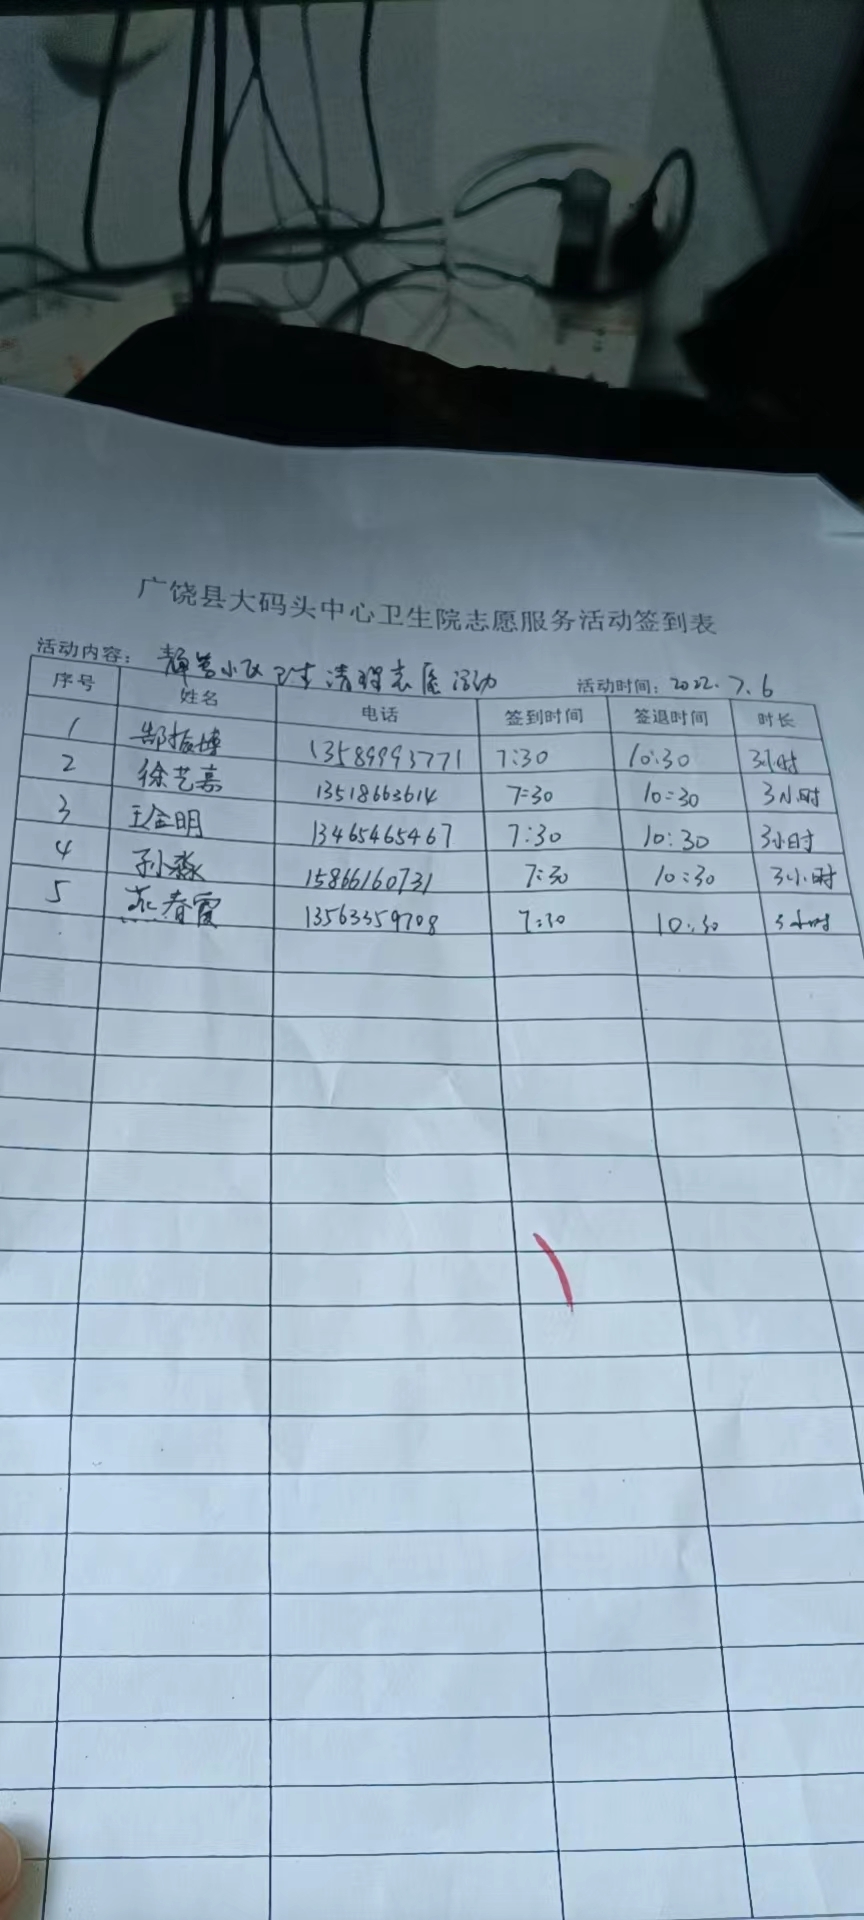 广饶县大码头中心卫生院志愿服务活动签到表
活动内容： 小区卫生清理志愿活动 活动时间：2022.7.6
序号 姓名 电话 签到时间 签退时间 时长
1 郜振博 13589993771 7:30 10:30 3小时
2 徐艺嘉 13518663614 7:30 10:30 3小时
3 王金明 13465465467 7:30 10:30 3小时
4 孙淼 15866160731 7:30 10:30 3小时
5 燕春霞 13563359708 7:30 10:30 3小时